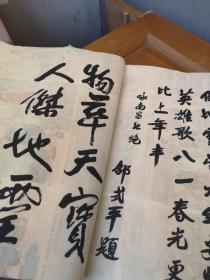 英雄歌八一春光更
比上年丰
咏南昌
邵式平題
物華天寶
人傑地靈